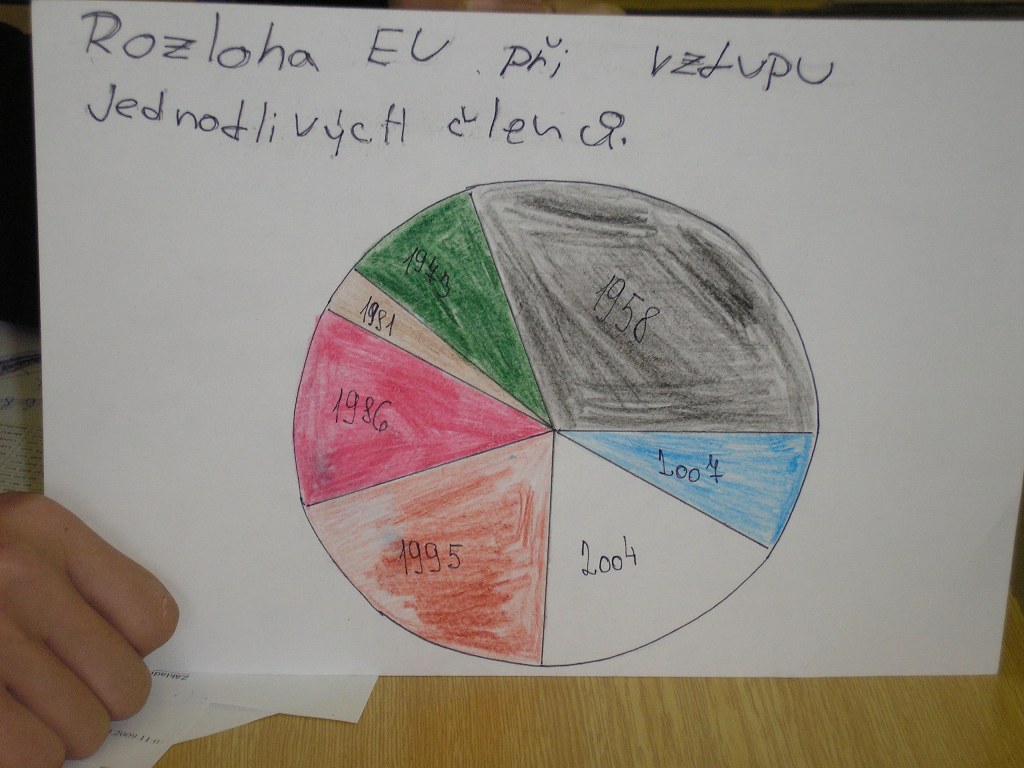 Rozloha EU při vztupu
Jednotlivých členů.
1958
1973
1981
1986
1995
2004
2007